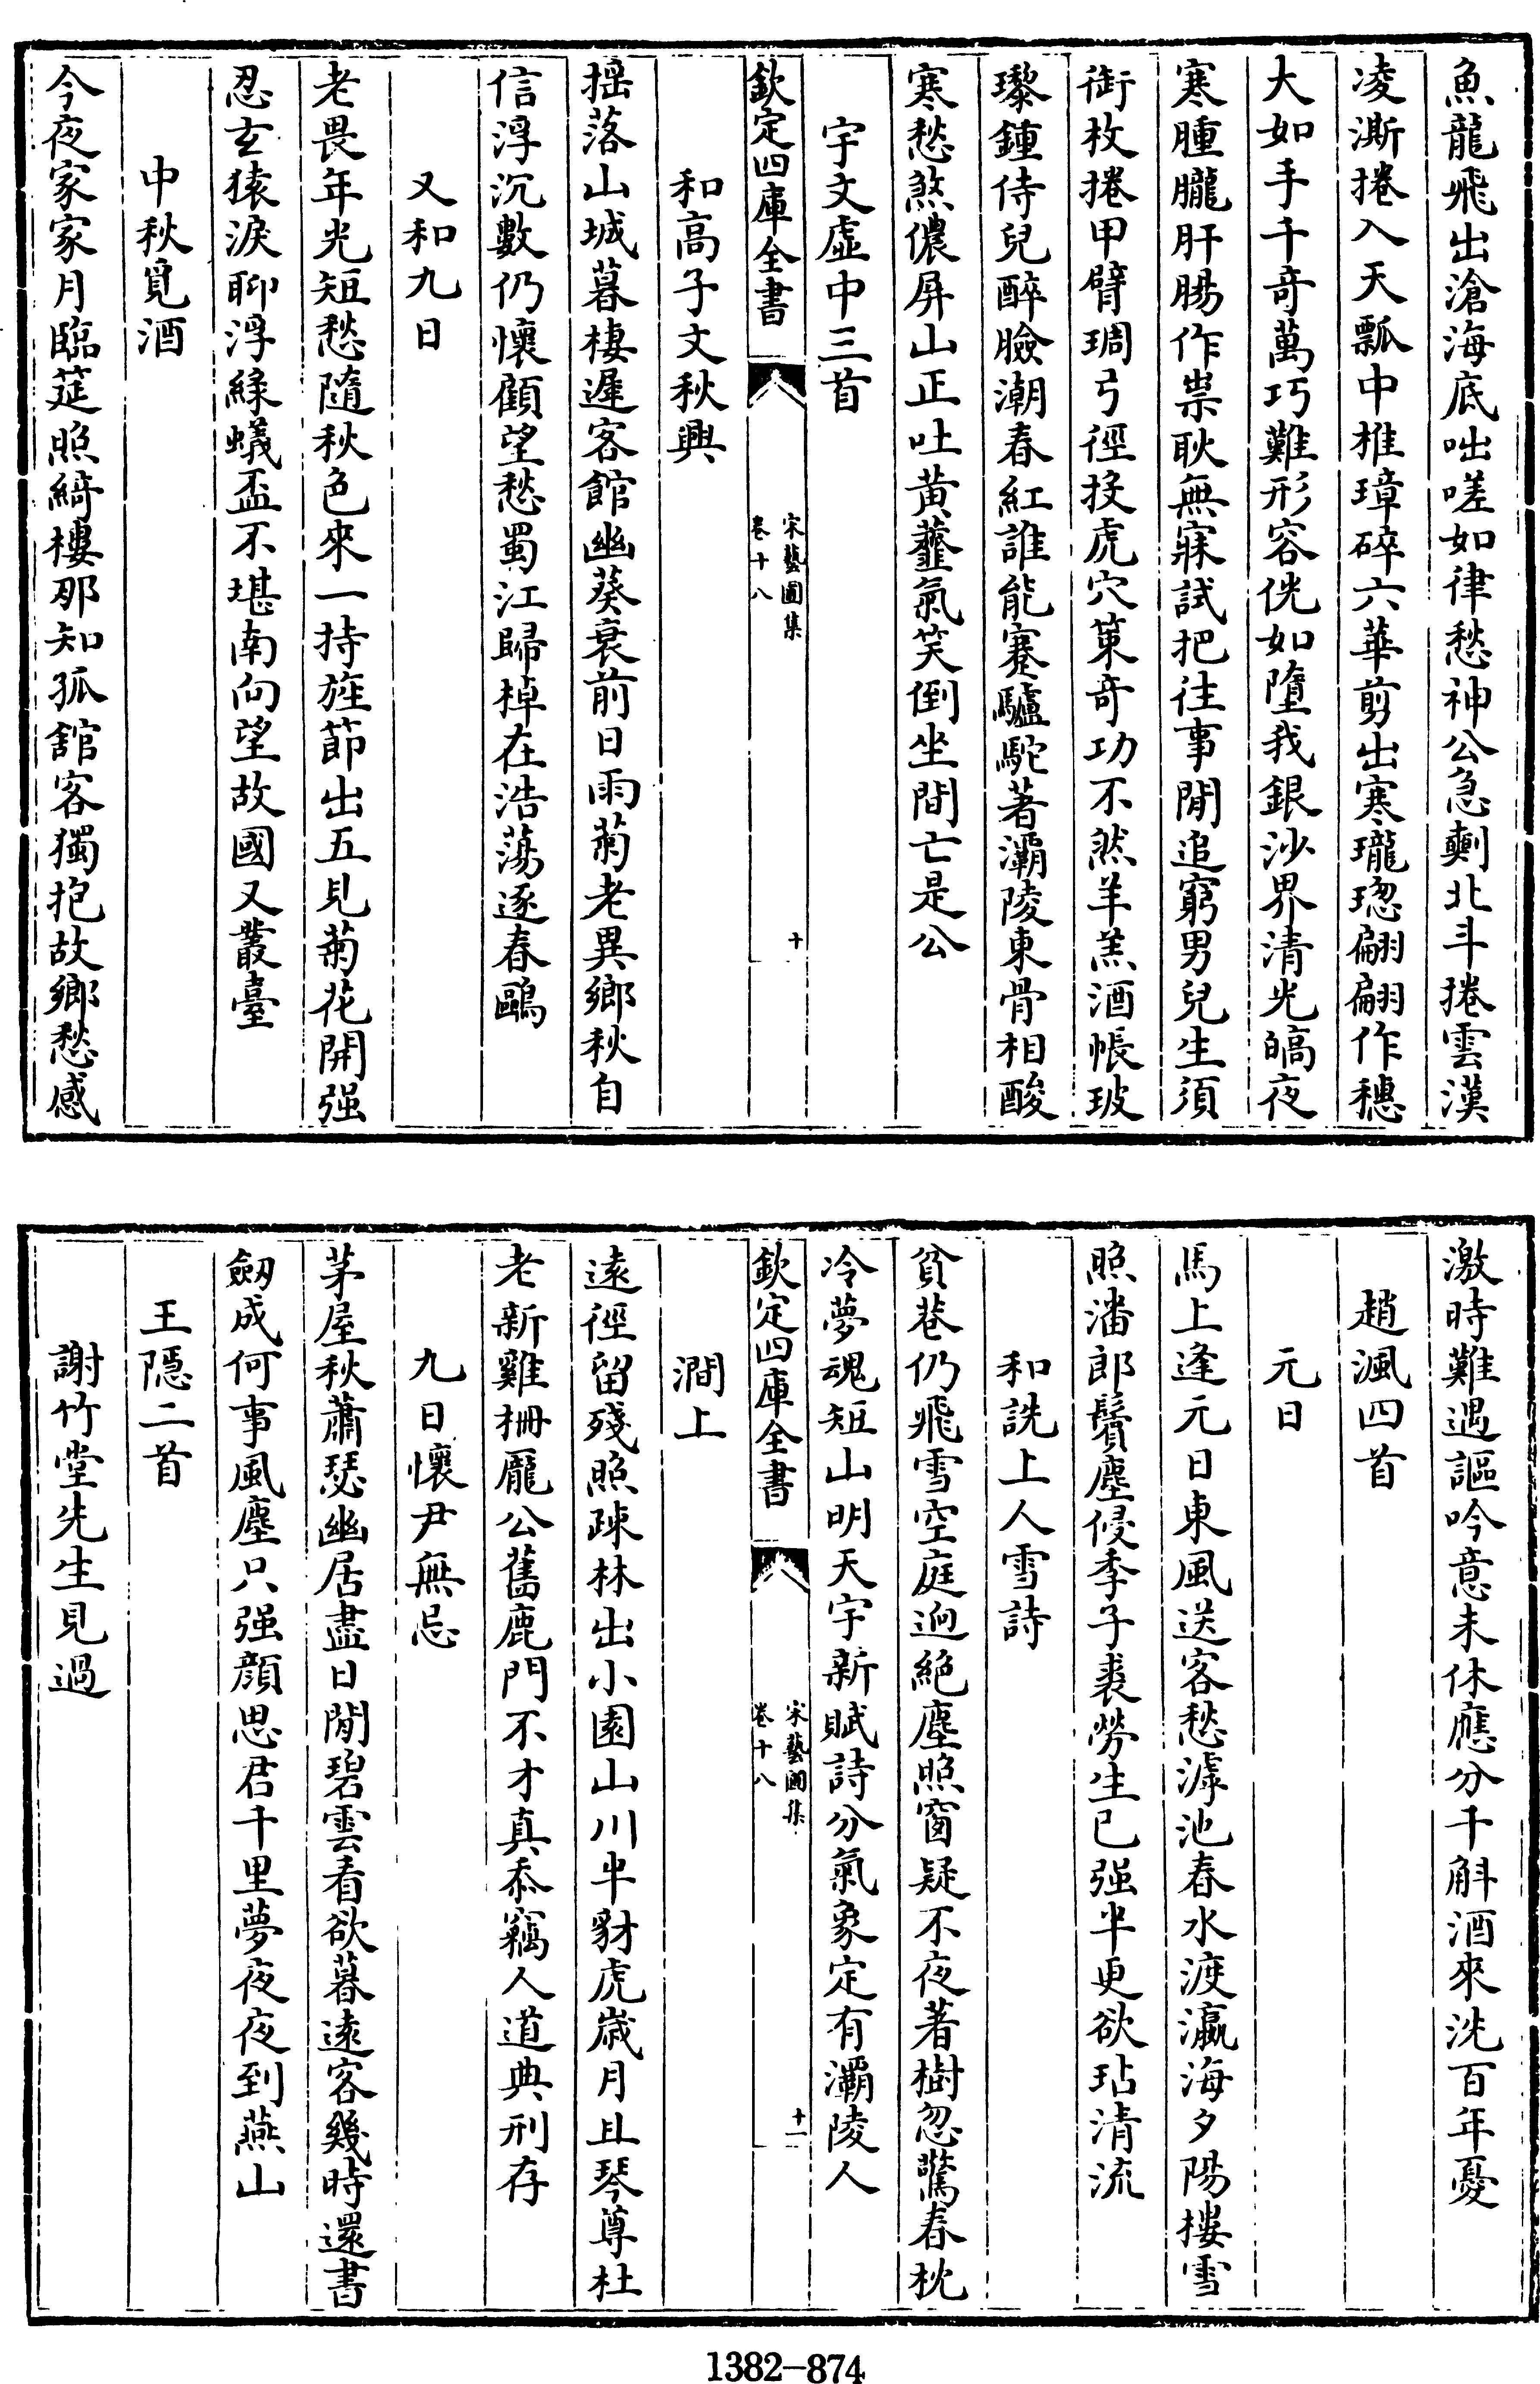 魚龍飛出滄海底咄嗟如律愁神公急剩北斗捲雲漢
凌澌捲入天瓢中椎璋碎六華剪出寒瓏璁翩翩作穗
大如手千奇萬巧難形容恍如墮我銀沙界清光皜夜
寒腫朧肝腸作祟耿無寐試把往事閒追窮男兒生須
銜枚捲甲臂琱弓徑投虎穴策奇功不然羊羔酒帳玻
瓈鍾侍兒醉臉潮春紅誰能蹇驢馳著灞陵東骨相酸
寒愁煞儂屏山正吐黄虀氣笑倒坐間亡是公
宇文虛中三首
欽定四庫全書
宋藝圃集
卷十八
十
和高子文秋興
揺落山城暮棲遲客館幽葵衰前日雨菊老異鄉秋自
信浮沉數仍懷顧望愁蜀江歸棹在浩蕩逐春鷗
又和九日
老畏年光短愁隨秋色來一持旌節出五見菊花開强
忍玄猿淚聊浮綠蟻盃不堪南向望故國又叢臺
中秋覓酒
今夜家家月臨筵照綺樓那知孤館客獨抱故鄉愁感
激時難遇謳吟意未休應分千斛酒來洗百年憂
趙渢四首
元日
馬上逢元日東風送客愁滹池春水渡瀛海夕陽樓雪
照潘郎鬢塵侵季子裘勞生已强半更欲玷清流
和詵上人雪詩
貧巷仍飛雪空庭逈絶塵照窗疑不夜著樹忽驚春枕
冷夢魂短山明天宇新賦詩分氣象定有灞陵人
欽定四庫全書
宋藝圃集
卷十八
十一
澗上
遠徑留殘照疎林出小園山川半豺虎歲月且琴尊杜
老新雞柵龐公舊鹿門不才真忝竊人道典刑存
九日懷尹無忌
茅屋秋蕭瑟幽居盡日閒碧雲看欲暮遠客幾時還書
劒成何事風塵只强顔思君千里夢夜夜到燕山
王隱二首
謝竹堂先生見過
1382-874